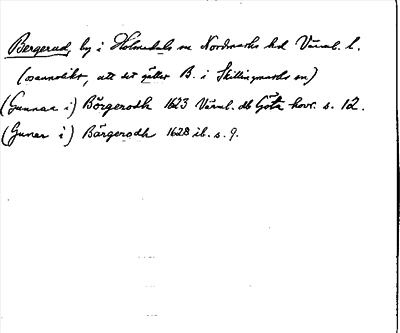 Bergerud, by i Holmedals sn Nordmarks hd Värml. l.
(osannolikt, att det gäller B. i Skillingmarks sn)
(Gunnar i) Börgerodh 1623 Värml. db Göta hovr. s. 12.
(Gunar i) Bärgerodh 1628 ib. s. 9.